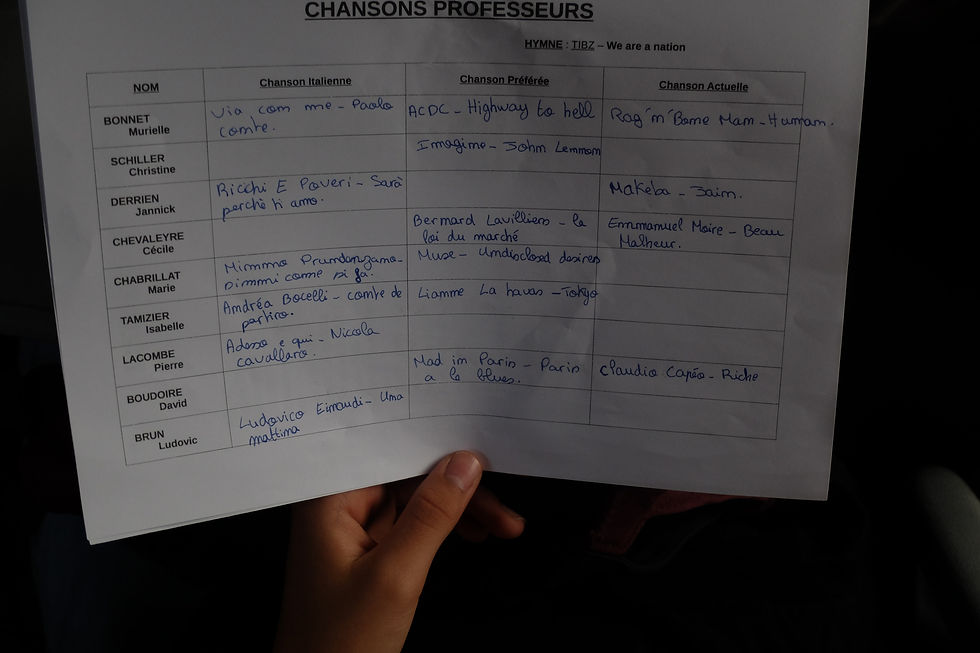 CHANSONS PROFESSEURS
HYMNE : TIBZ – We are a nation
NOM Chanson Italienne Chanson Préférée Chanson Actuelle
BONNET
Murielle
Via com me - Paolo
comte.
ACDC - Highway to hell
Rag'm'Bome Mam - Humam.
SCHILLER
Christine
Imagime - John Lemmom
DERRIEN
Jannick
Ricchi E Poveri - Sarà
perchè ti amo.
Makeba - Jaim.
CHEVALEYRE
Cécile
Bermard Lavilliers - la
loi du marché
Emmamuel Moire - Beau
Malheur.
CHABRILLAT
Marie
Mimmo
Dimmi come si fa.
Muse - Umdisclosed desires
TAMIZIER
Isabelle
Andréa Bocelli - comte de
partiro.
Liamme La havas - Tokyo
LACOMBE
Pierre
Adesso e qui - Nicola
cavallaro.
BOUDOIRE
David
Mad im Paris - Paris
a le blues.
Claudio Capéo - Riche
BRUN
Ludovic
Ludovico Eimaudi - Uma
mattima